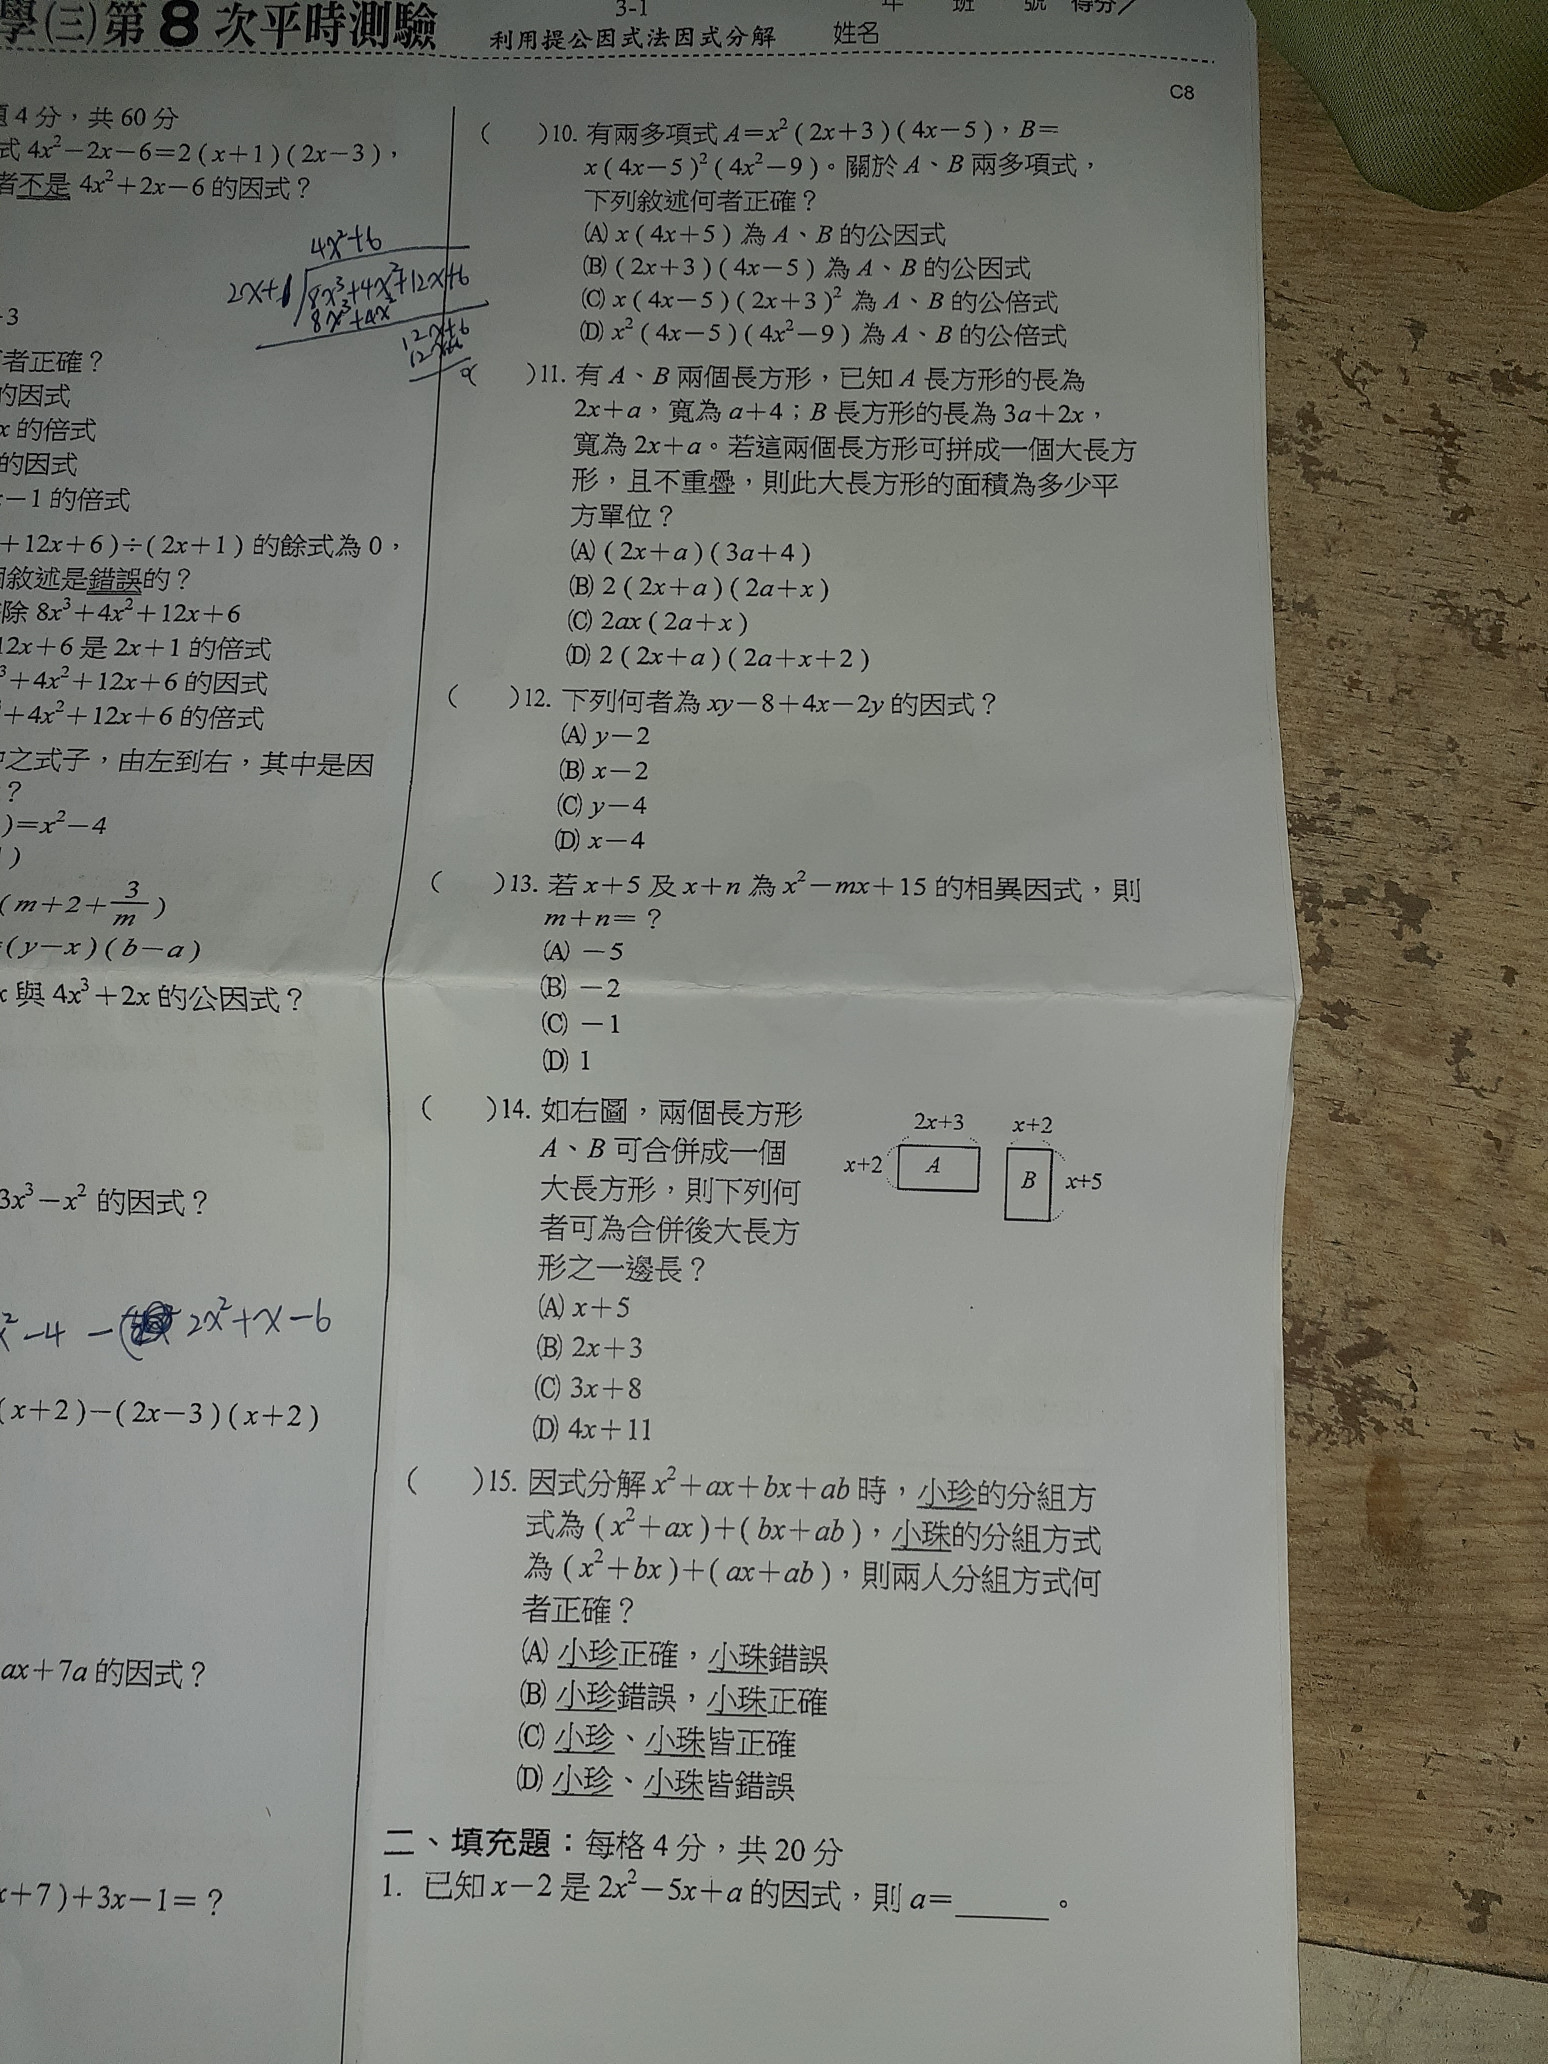 學(三)第8次平時測驗
3-1
利用提公因式法因式分解
年 班 號 得分
姓名
C8
題4分，共60分
式 4x²－2x－6＝2(x＋1)(2x－3)，
者不是 4x²＋2x－6 的因式？
4x²+6
2x+1 8x³+4x²+12x+6
8x³+4x²
12x+6
12x+6
－3
者正確？
的因式
x 的倍式
的因式
－1 的倍式
＋12x＋6)÷(2x＋1) 的餘式為 0，
敘述是錯誤的？
除 8x³＋4x²＋12x＋6
12x＋6 是 2x＋1 的倍式
³＋4x²＋12x＋6 的因式
＋4x²＋12x＋6 的倍式
中之式子，由左到右，其中是因
？
)＝x²－4
)
(m＋2＋3/m)
(y－x)(b－a)
x 與 4x³＋2x 的公因式？
3x³－x² 的因式？
x²-4 -( 2x²+x-6
(x＋2)－(2x－3)(x＋2)
ax＋7a 的因式？
x＋7)＋3x－1＝？
( )10. 有兩多項式 A＝x²(2x＋3)(4x－5)，B＝
x(4x－5)²(4x²－9)。關於 A、B 兩多項式，
下列敘述何者正確？
(A) x(4x＋5) 為 A、B 的公因式
(B) (2x＋3)(4x－5) 為 A、B 的公因式
(C) x(4x－5)(2x＋3)² 為 A、B 的公倍式
(D) x²(4x－5)(4x²－9) 為 A、B 的公倍式
( )11. 有 A、B 兩個長方形，已知 A 長方形的長為
2x＋a，寬為 a＋4；B 長方形的長為 3a＋2x，
寬為 2x＋a。若這兩個長方形可拼成一個大長方
形，且不重疊，則此大長方形的面積為多少平
方單位？
(A) (2x＋a)(3a＋4)
(B) 2(2x＋a)(2a＋x)
(C) 2ax(2a＋x)
(D) 2(2x＋a)(2a＋x＋2)
( )12. 下列何者為 xy－8＋4x－2y 的因式？
(A) y－2
(B) x－2
(C) y－4
(D) x－4
( )13. 若 x＋5 及 x＋n 為 x²－mx＋15 的相異因式，則
m＋n＝？
(A) －5
(B) －2
(C) －1
(D) 1
( )14. 如右圖，兩個長方形
A、B 可合併成一個
大長方形，則下列何
者可為合併後大長方
形之一邊長？
2x+3
x+2
x+2
A
B
x+5
(A) x＋5
(B) 2x＋3
(C) 3x＋8
(D) 4x＋11
( )15. 因式分解 x²＋ax＋bx＋ab 時，小珍的分組方
式為 (x²＋ax)＋(bx＋ab)，小珠的分組方式
為 (x²＋bx)＋(ax＋ab)，則兩人分組方式何
者正確？
(A) 小珍正確，小珠錯誤
(B) 小珍錯誤，小珠正確
(C) 小珍、小珠皆正確
(D) 小珍、小珠皆錯誤
二、填充題：每格 4 分，共 20 分
1. 已知 x－2 是 2x²－5x＋a 的因式，則 a＝______。